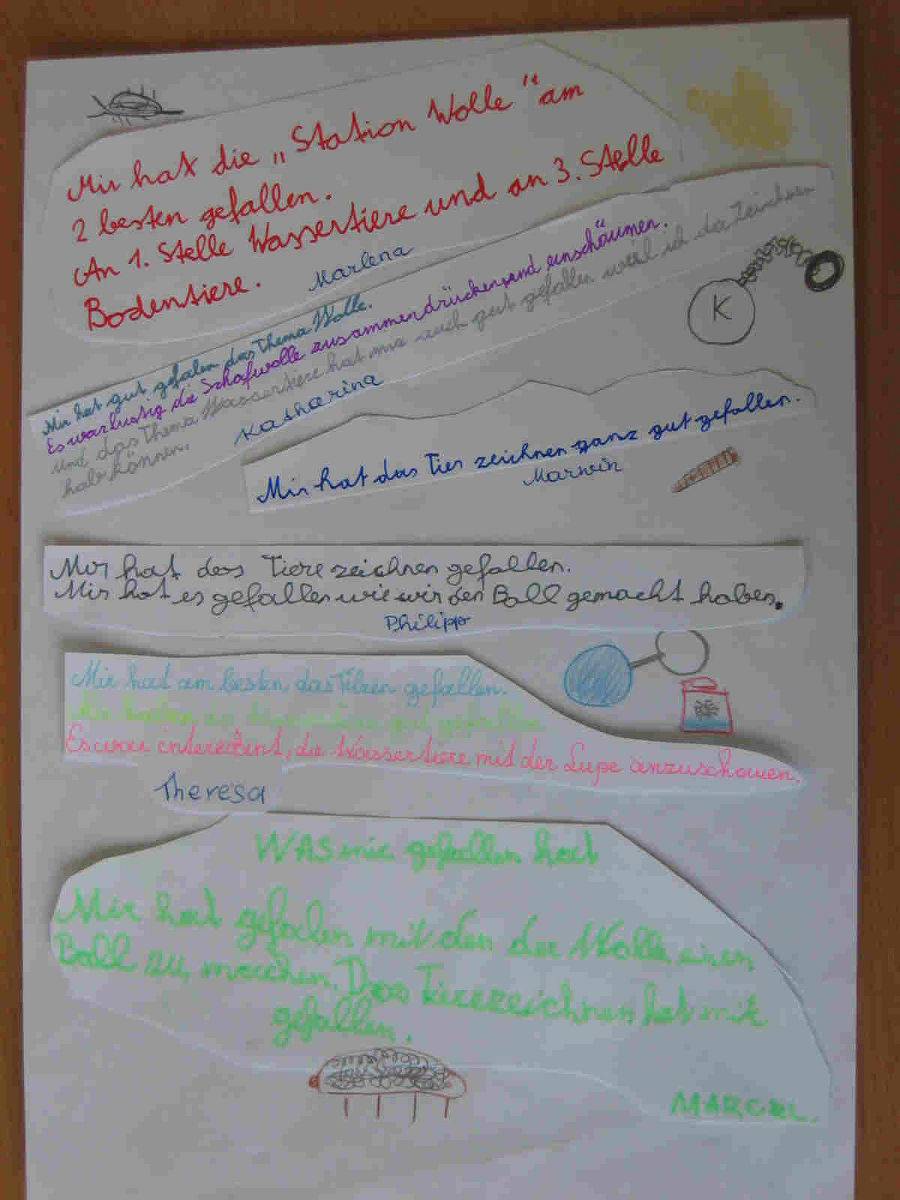 Mir hat die „Station Wolle" am
2 besten gefallen.
An 1. Stelle Wassertiere und an 3. Stelle
Bodentiere.
Marlena
Mir hat gut gefalen das Thema Wolle.
Es war lustig die Schafwolle zusammendrücken und einschäumen.
und das Thema Wassertiere hat mir auch gut gefallen weil ich da Zeichnen
hab können.
Katharina
K
Mir hat das Tier zeichnen ganz gut gefallen.
Marwin
Mir hat das Tiere zeichnen gefallen.
Mir hat es gefallen wie wir den Ball gemacht haben.
Philipp
Mir hat am besten das Filzen gefallen.
Mir haben die Wassertiere gut gefallen.
Es war interesant, die Wassertiere mit der Lupe anzuschauen.
Theresa
WAS mir gefallen hat
Mir hat gefalen mit den der Wolle einen
Ball zu machen. Das Tierezeichnen hat mir
gefallen.
MARCEL.